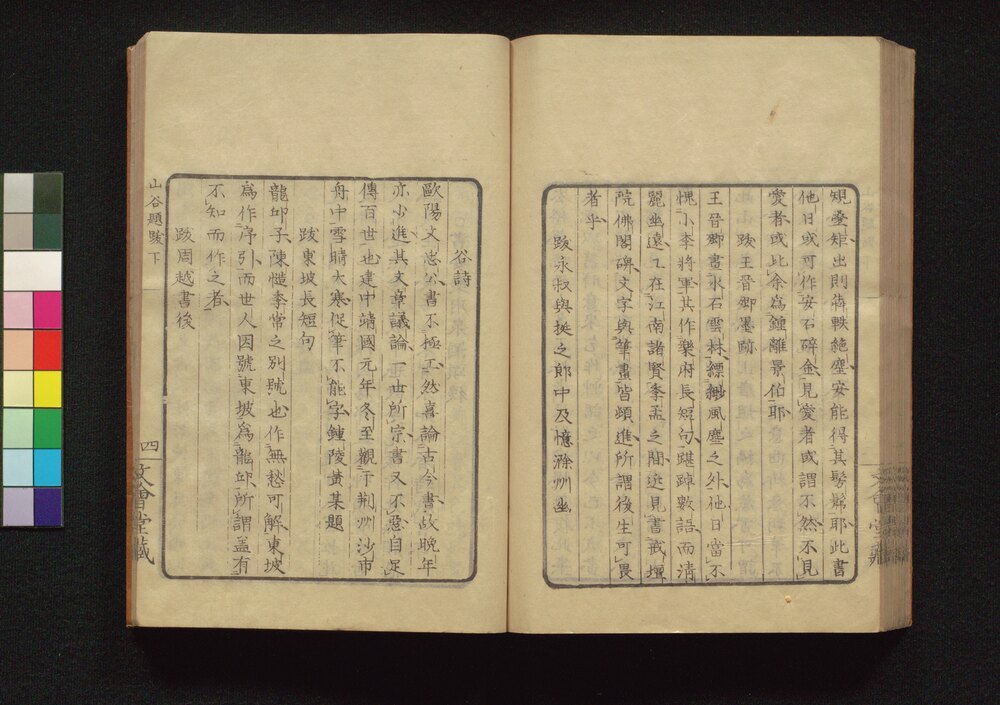 規疊矩出則犇軼絶塵安能得其髣髴耶此書
他日或可作安石碎金見愛者或謂不然不見
愛者或比余爲鍾離景伯耶
跋王晉卿墨跡
王晉卿畫水石雲林縹緲風塵之外他日當不
愧小李將軍其作樂府長短句踸踔數語而清
麗幽遠工在江南諸賢季孟之間近見書戒壇
院佛閣碑文字與筆畫皆頓進所謂後生可畏
者乎
跋永叔與挺之郎中及憶滁州幽
谷詩
歐陽文忠公書不極工然喜論古今書故晩年
亦少進其文章議論一世所宗書又不惡自足
傳百世也建中靖國元年冬至觀于荆州沙市
舟中雪晴大寒促筆不能字鍾陵黄某題
跋東坡長短句
龍丘子陳慥季常之别號也作無愁可解東坡
爲作序引而世人因號東坡爲龍丘所謂盖有
不知而作之者
跋周越書後
山谷題跋下
四
文會堂藏